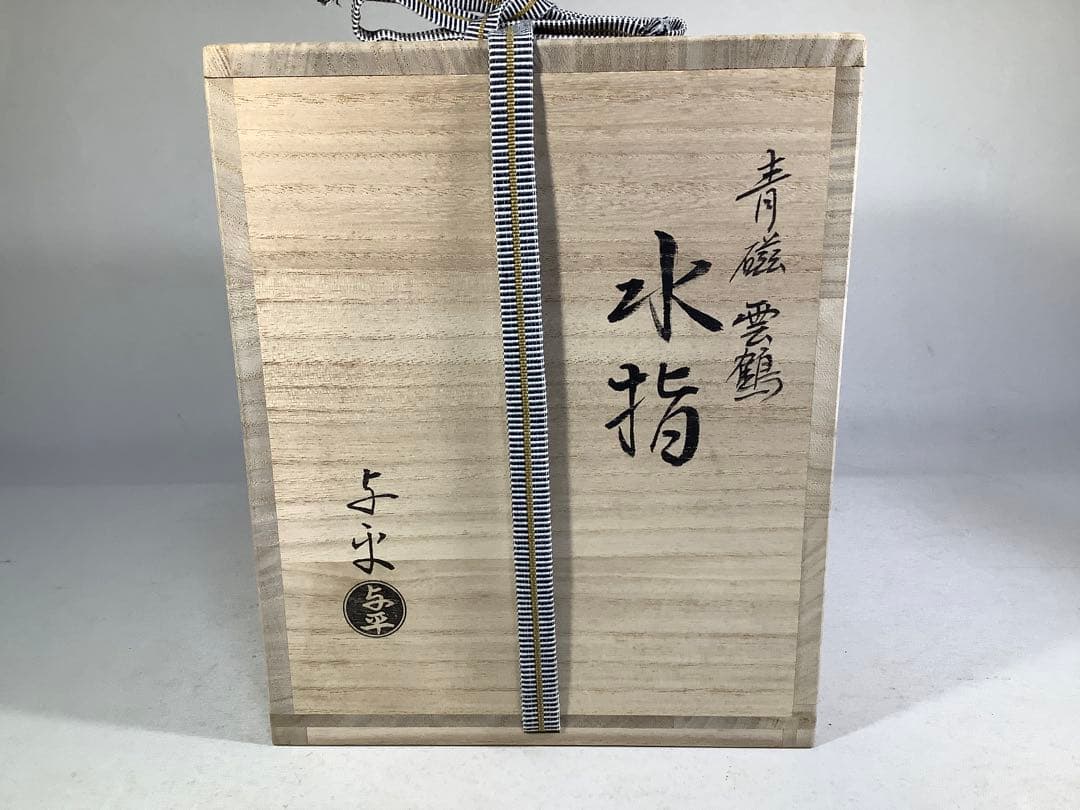 青磁雲鶴
水指
与平
与平